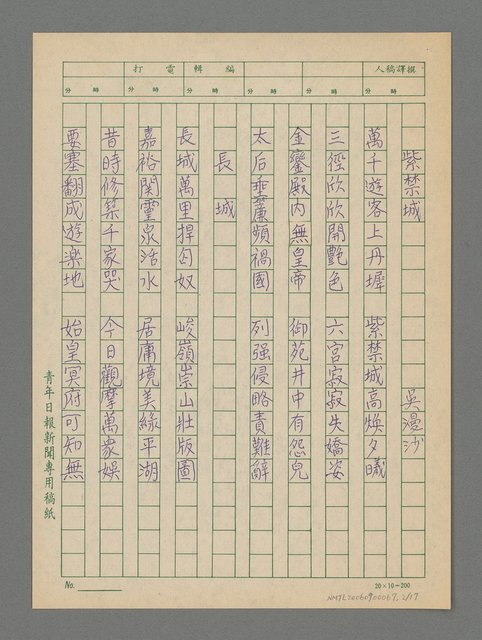 撰譯稿人
編輯
電打
時 分 時 分 時 分 時 分 時 分 時 分
紫禁城 吳漫沙
萬千遊客上丹墀 紫禁城高煥夕曦
三徑欣欣開艷色 六宮寂寂失嬌姿
金鑾殿內無皇帝 御苑井中有怨兒
太后垂簾頻禍國 列强侵略責難辭
長城
長城萬里捍匈奴 峻嶺崇山壯版圖
嘉裕関靈泉活水 居庸境美綠平湖
昔時修築千家哭 今日觀摩萬衆娛
要塞翻成遊楽地 始皇冥府可知無
青年日報新聞專用稿紙
No.
20×10=200
NMTL20060900067, 2/17